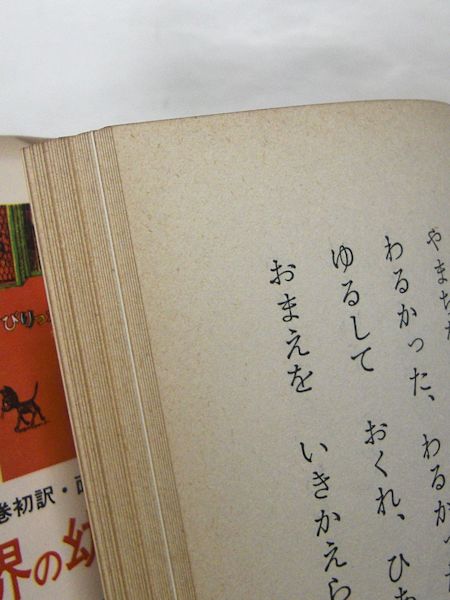 やまちが
わるかった、わるかった
ゆるして　おくれ、ひあ
おまえを　いきかえら
びりっ
巻初訳・面
界の幼